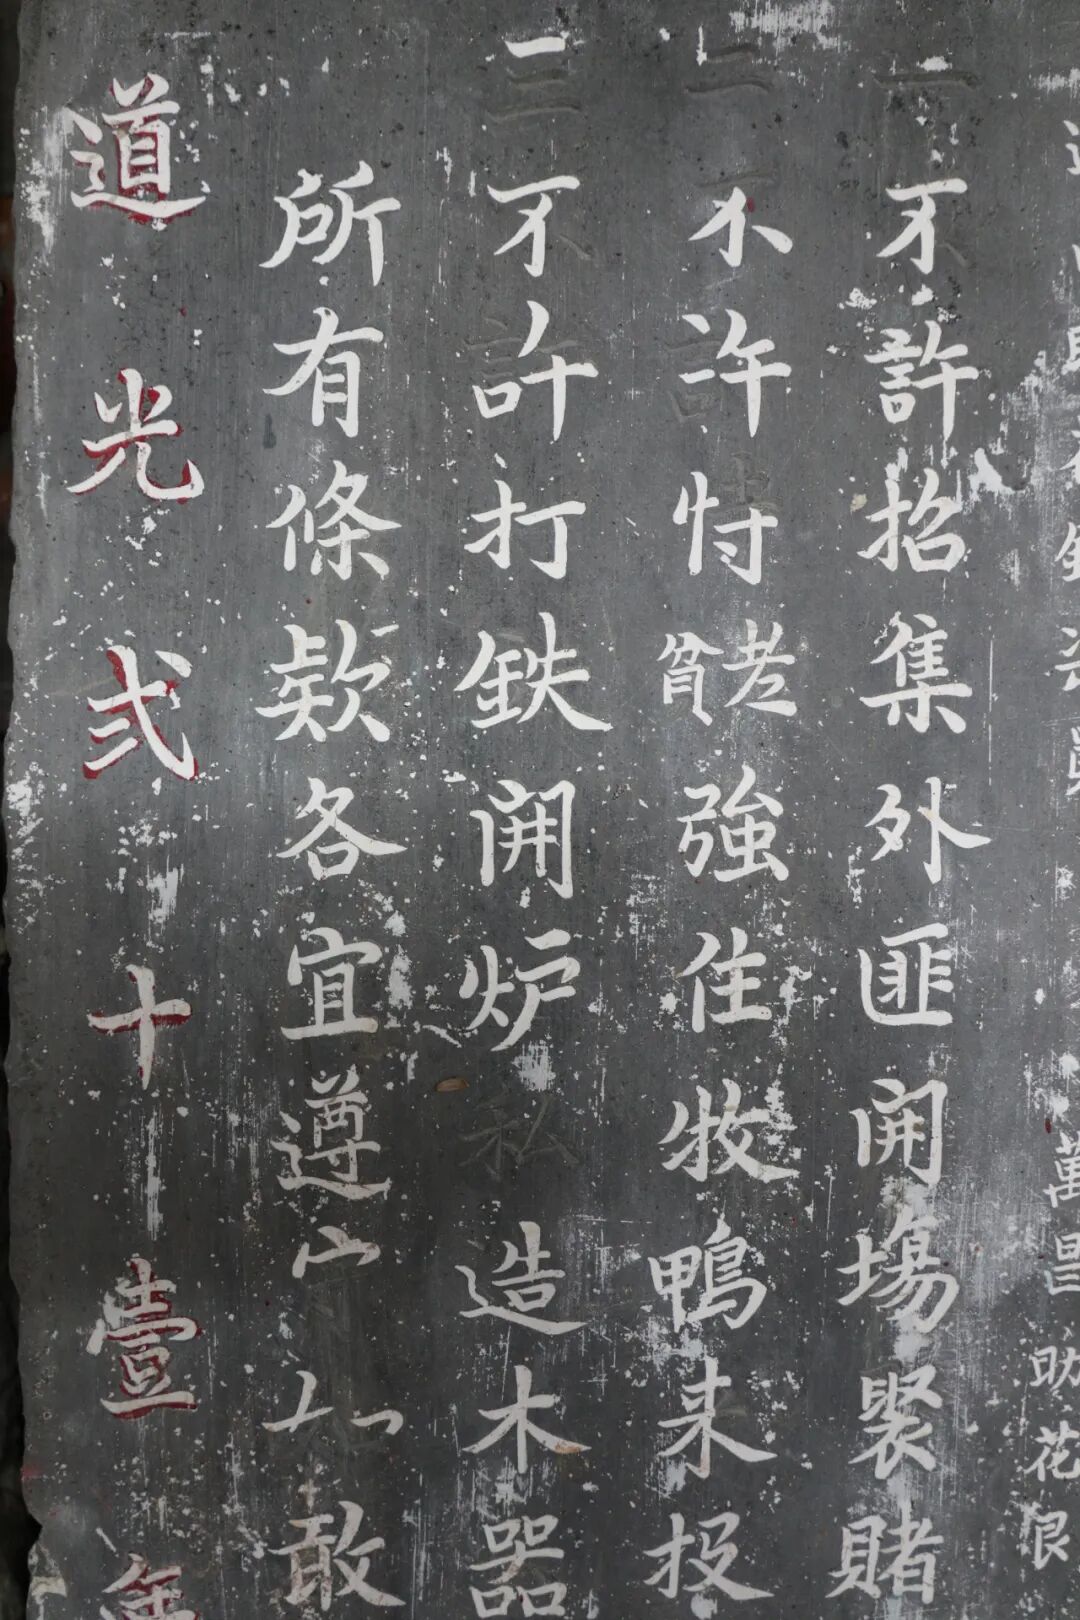 萬助花艮
一不許招集外匪開塲聚賭
二不許恃老強住牧鴨来投
三不許打鉄開炉私造木器
所有條欵各宜遵守如敢
道光弍十壹年